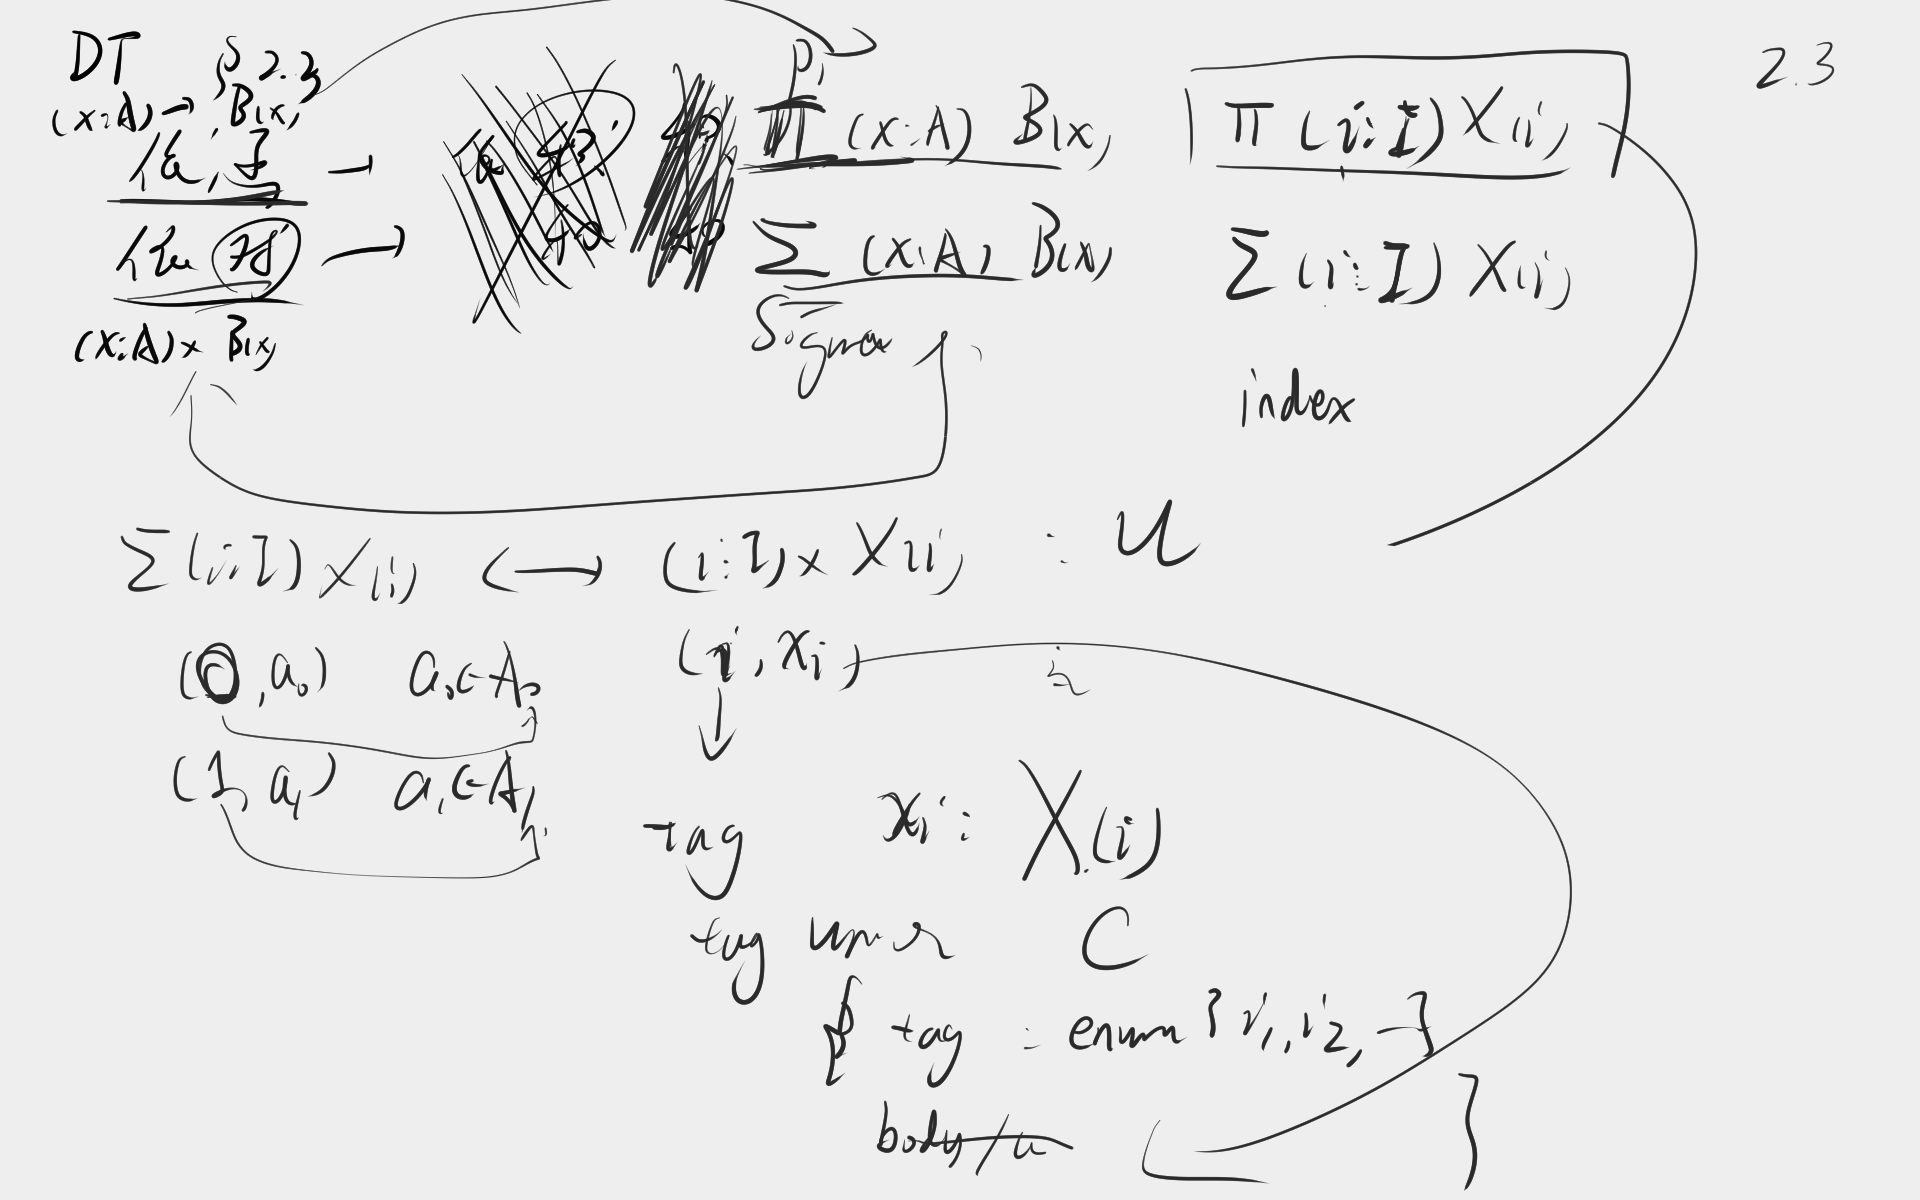 DT § 2.3
(x:A) → B(x)
依 →
依 对 →
(x:A) × B(x)
Pi
Π (x:A) B(x)
Σ (x:A) B(x)
Sigma
Π (i:I) X(i)
Σ (i:I) X(i)
index
2.3
Σ(i:I) X(i) ⟷ (i:I) × X(i) : U
(0, a₀) a₀ ∈ A₀
(1, a₁) a₁ ∈ A₁
(i, xᵢ)
↓
tag xᵢ : X(i)
tag C
{ tag : enum { i₁, i₂, — }
body
}